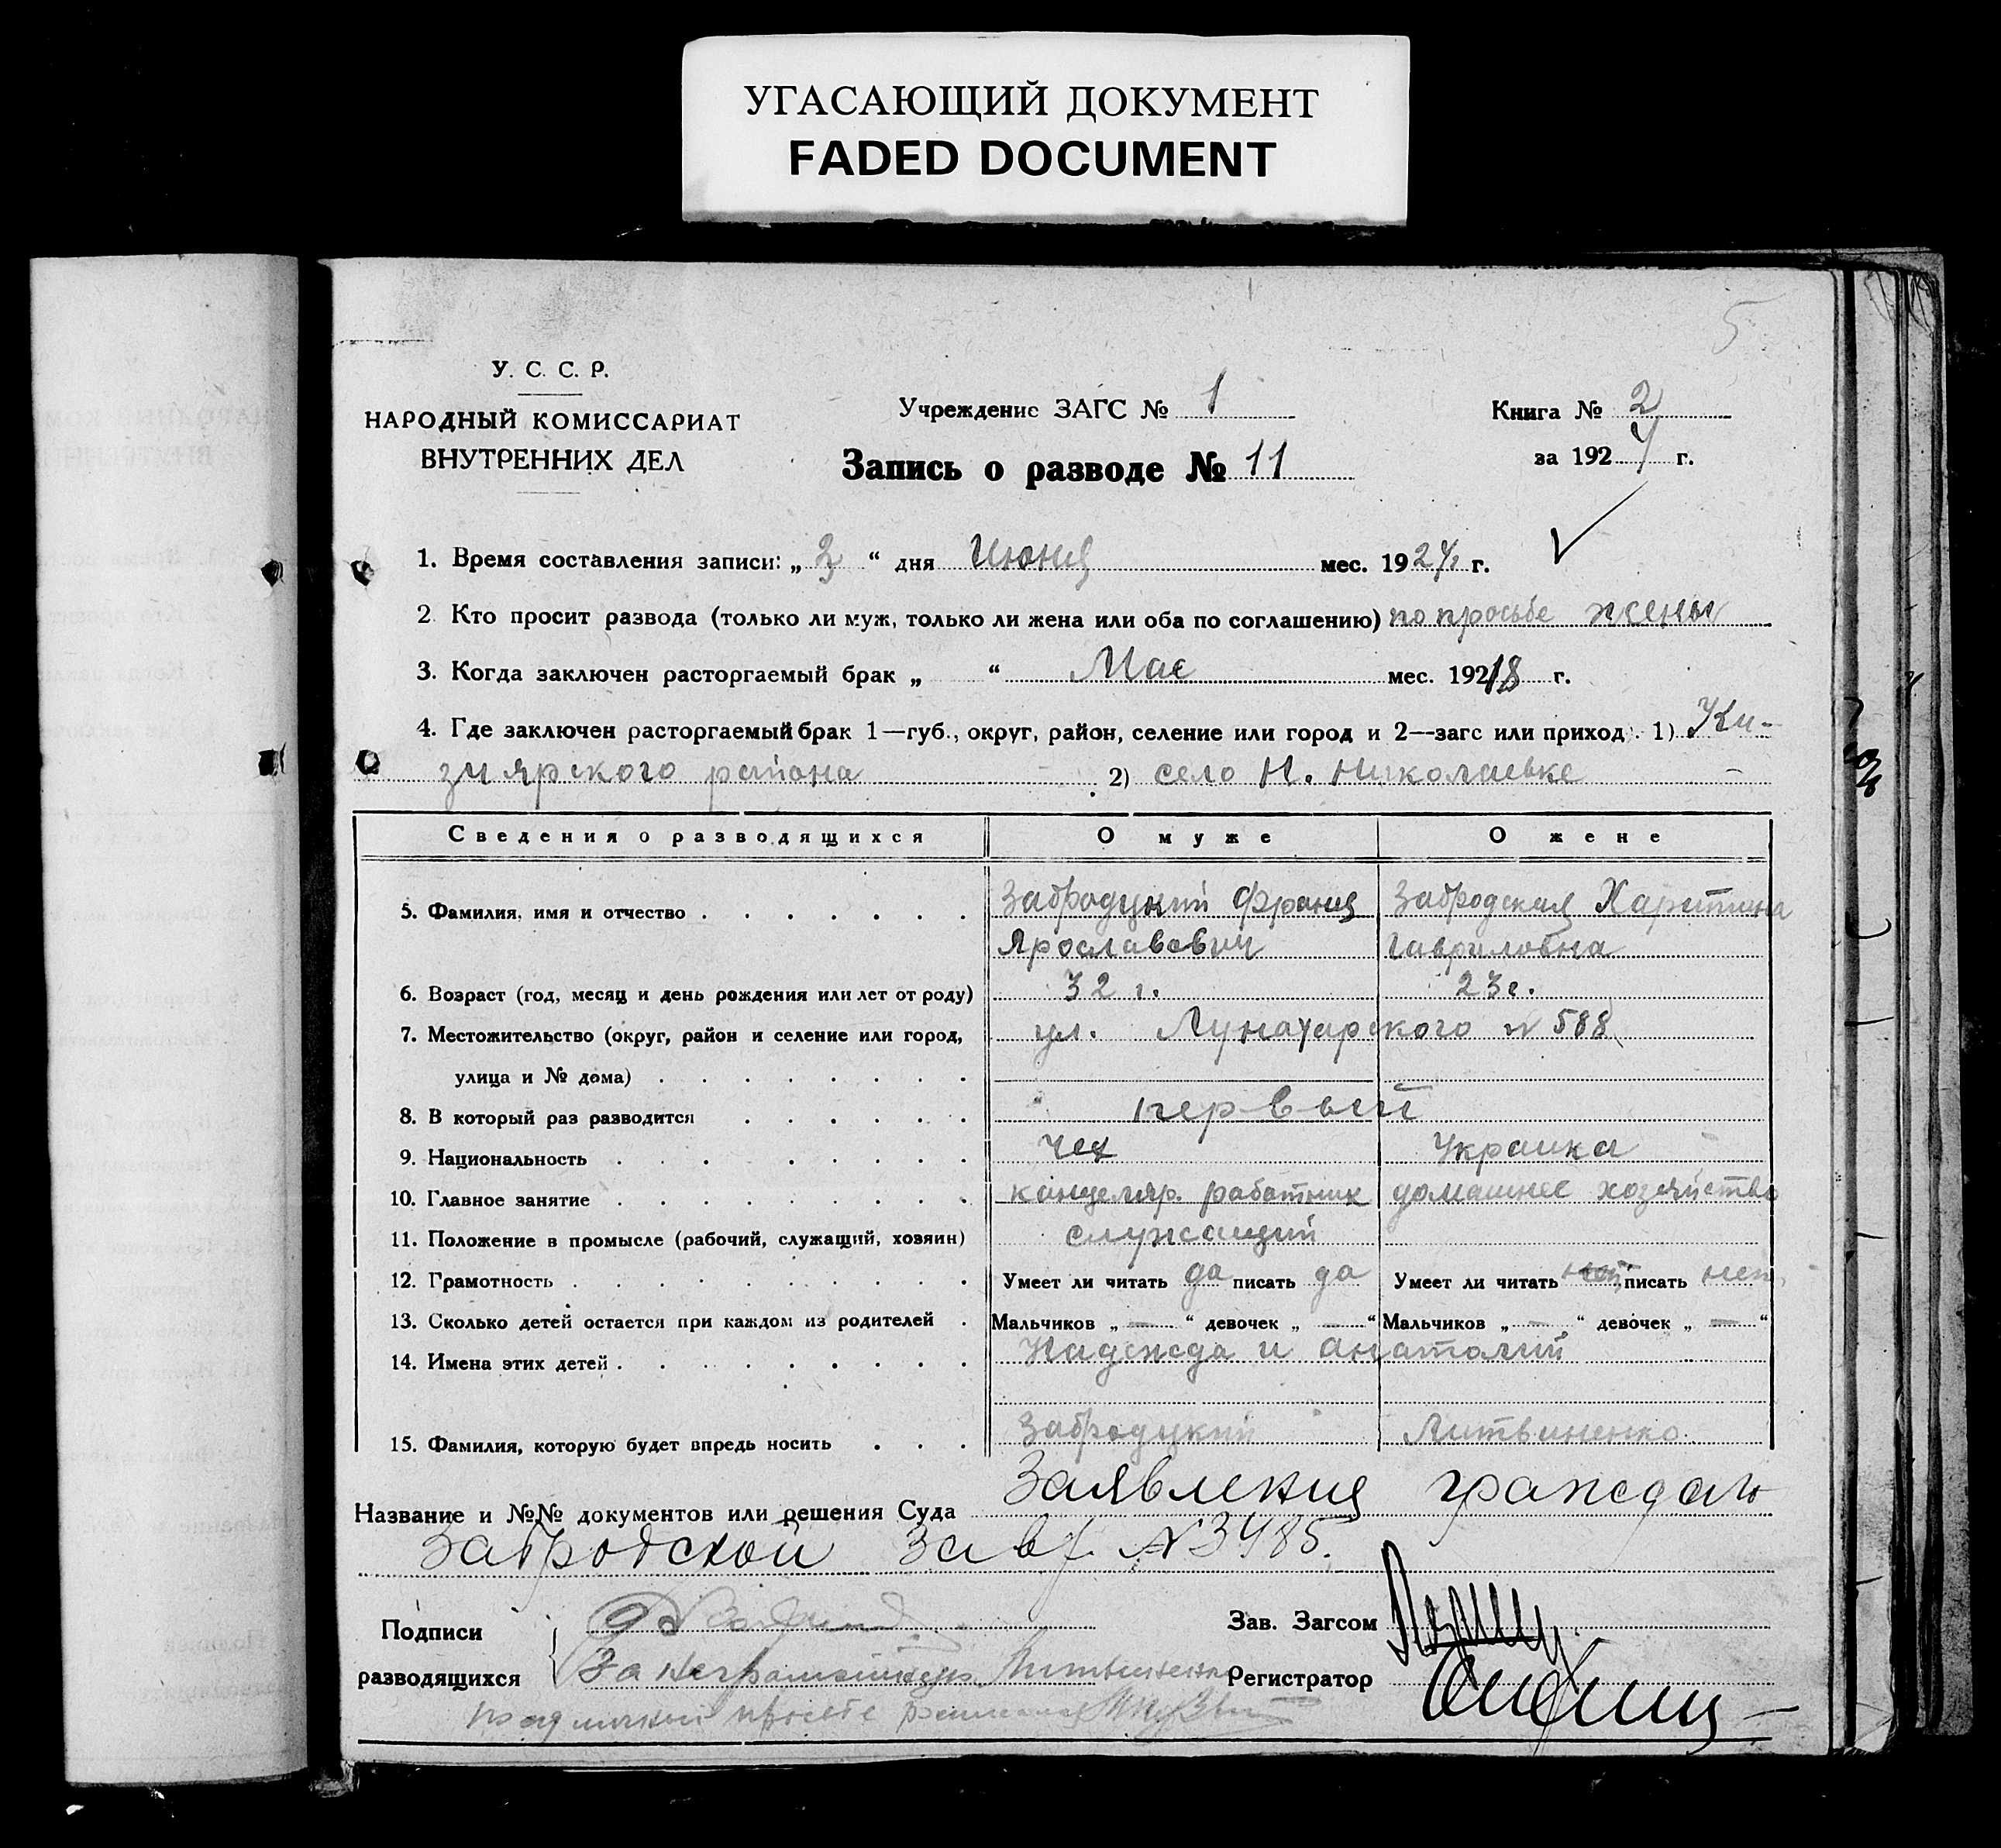 УГАСАЮЩИЙ ДОКУМЕНТ
FADED DOCUMENT
5
У. С. С. Р.
НАРОДНЫЙ КОМИССАРИАТ
ВНУТРЕННИХ ДЕЛ
Учреждение ЗАГС № 1
Книга № 2
за 1924 г.
Запись о разводе № 11
1. Время составления записи: „ 3 “ дня Июня мес. 1924 г.
2. Кто просит развода (только ли муж, только ли жена или оба по соглашению) по просьбе жены
3. Когда заключен расторгаемый брак „ “ Мае мес. 1918 г.
4. Где заключен расторгаемый брак 1—губ., округ, район, селение или город и 2—загс или приход. 1) Ки-
зиярского района 2) село Н. Николаевке
Сведения о разводящихся О муже О жене
5. Фамилия, имя и отчество Забродцкий Франц Забродская Харитина
Ярославович Гавриловна
6. Возраст (год, месяц и день рождения или лет от роду) 32 г. 23 г.
7. Местожительство (округ, район и селение или город, ул. Луначарского № 588
улица и № дома)
8. В который раз разводится первый
9. Национальность чех Украинка
10. Главное занятие канцеляр. работник домашнее хозяйство
11. Положение в промысле (рабочий, служащий, хозяин) служащий
12. Грамотность Умеет ли читать да писать да Умеет ли читать нет писать нет
13. Сколько детей остается при каждом из родителей Мальчиков „ — “ девочек „ — “ Мальчиков „ — “ девочек „ — “
14. Имена этих детей Надежда и Анатолий
15. Фамилия, которую будет впредь носить Забродцкий Литвиненко
Название и №№ документов или решения Суда Заявления граждан
Забродской за вх. № 3485.
Подписи
разводящихся За неграмотную Литвиненко
по личной просьбе
Зав. Загсом
Регистратор